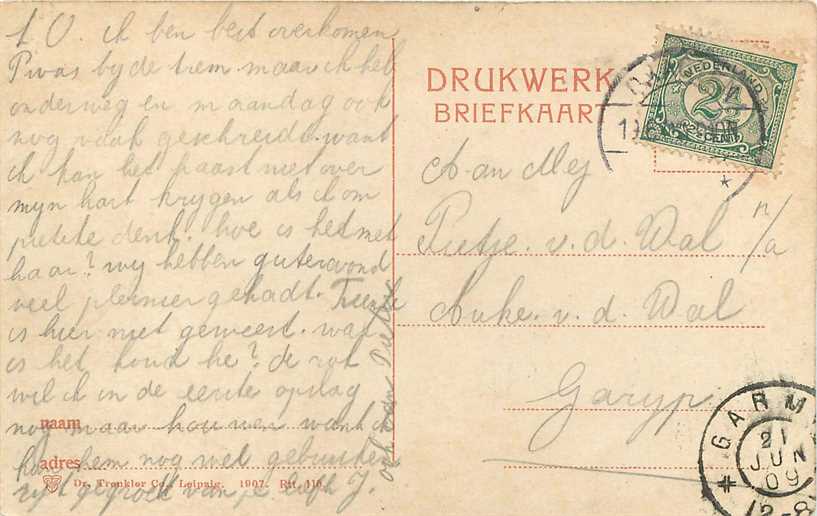 L O. ik ben best overkomen
P was by de trem maar ik heb
onderweg en maandag ook
nog vaak geschreid. want
ik kan het haast niet over
myn hart krygen als ik om
pietite denk. hoe is het met
haar? wy hebben gisteravond
veel plezier gehadt.
is hier niet geweest. wat
is het koud he? de rok
wil ik in de eerste opslag
nog maar houwen want ik
kan hem nog wel gebruiken
gegroet van je liefh J.
ook van
naam
adres
Dr. Trenkler Co., Leipzig. 1907. Rtt. 110
DRUKWERK
BRIEFKAART
NEDERLAND
2½
CENT
Aan Mej
Pietje. v. d. Wal
p/a
Auke. v. d. Wal
Garyp
GARM
21
JUN
09
12-8